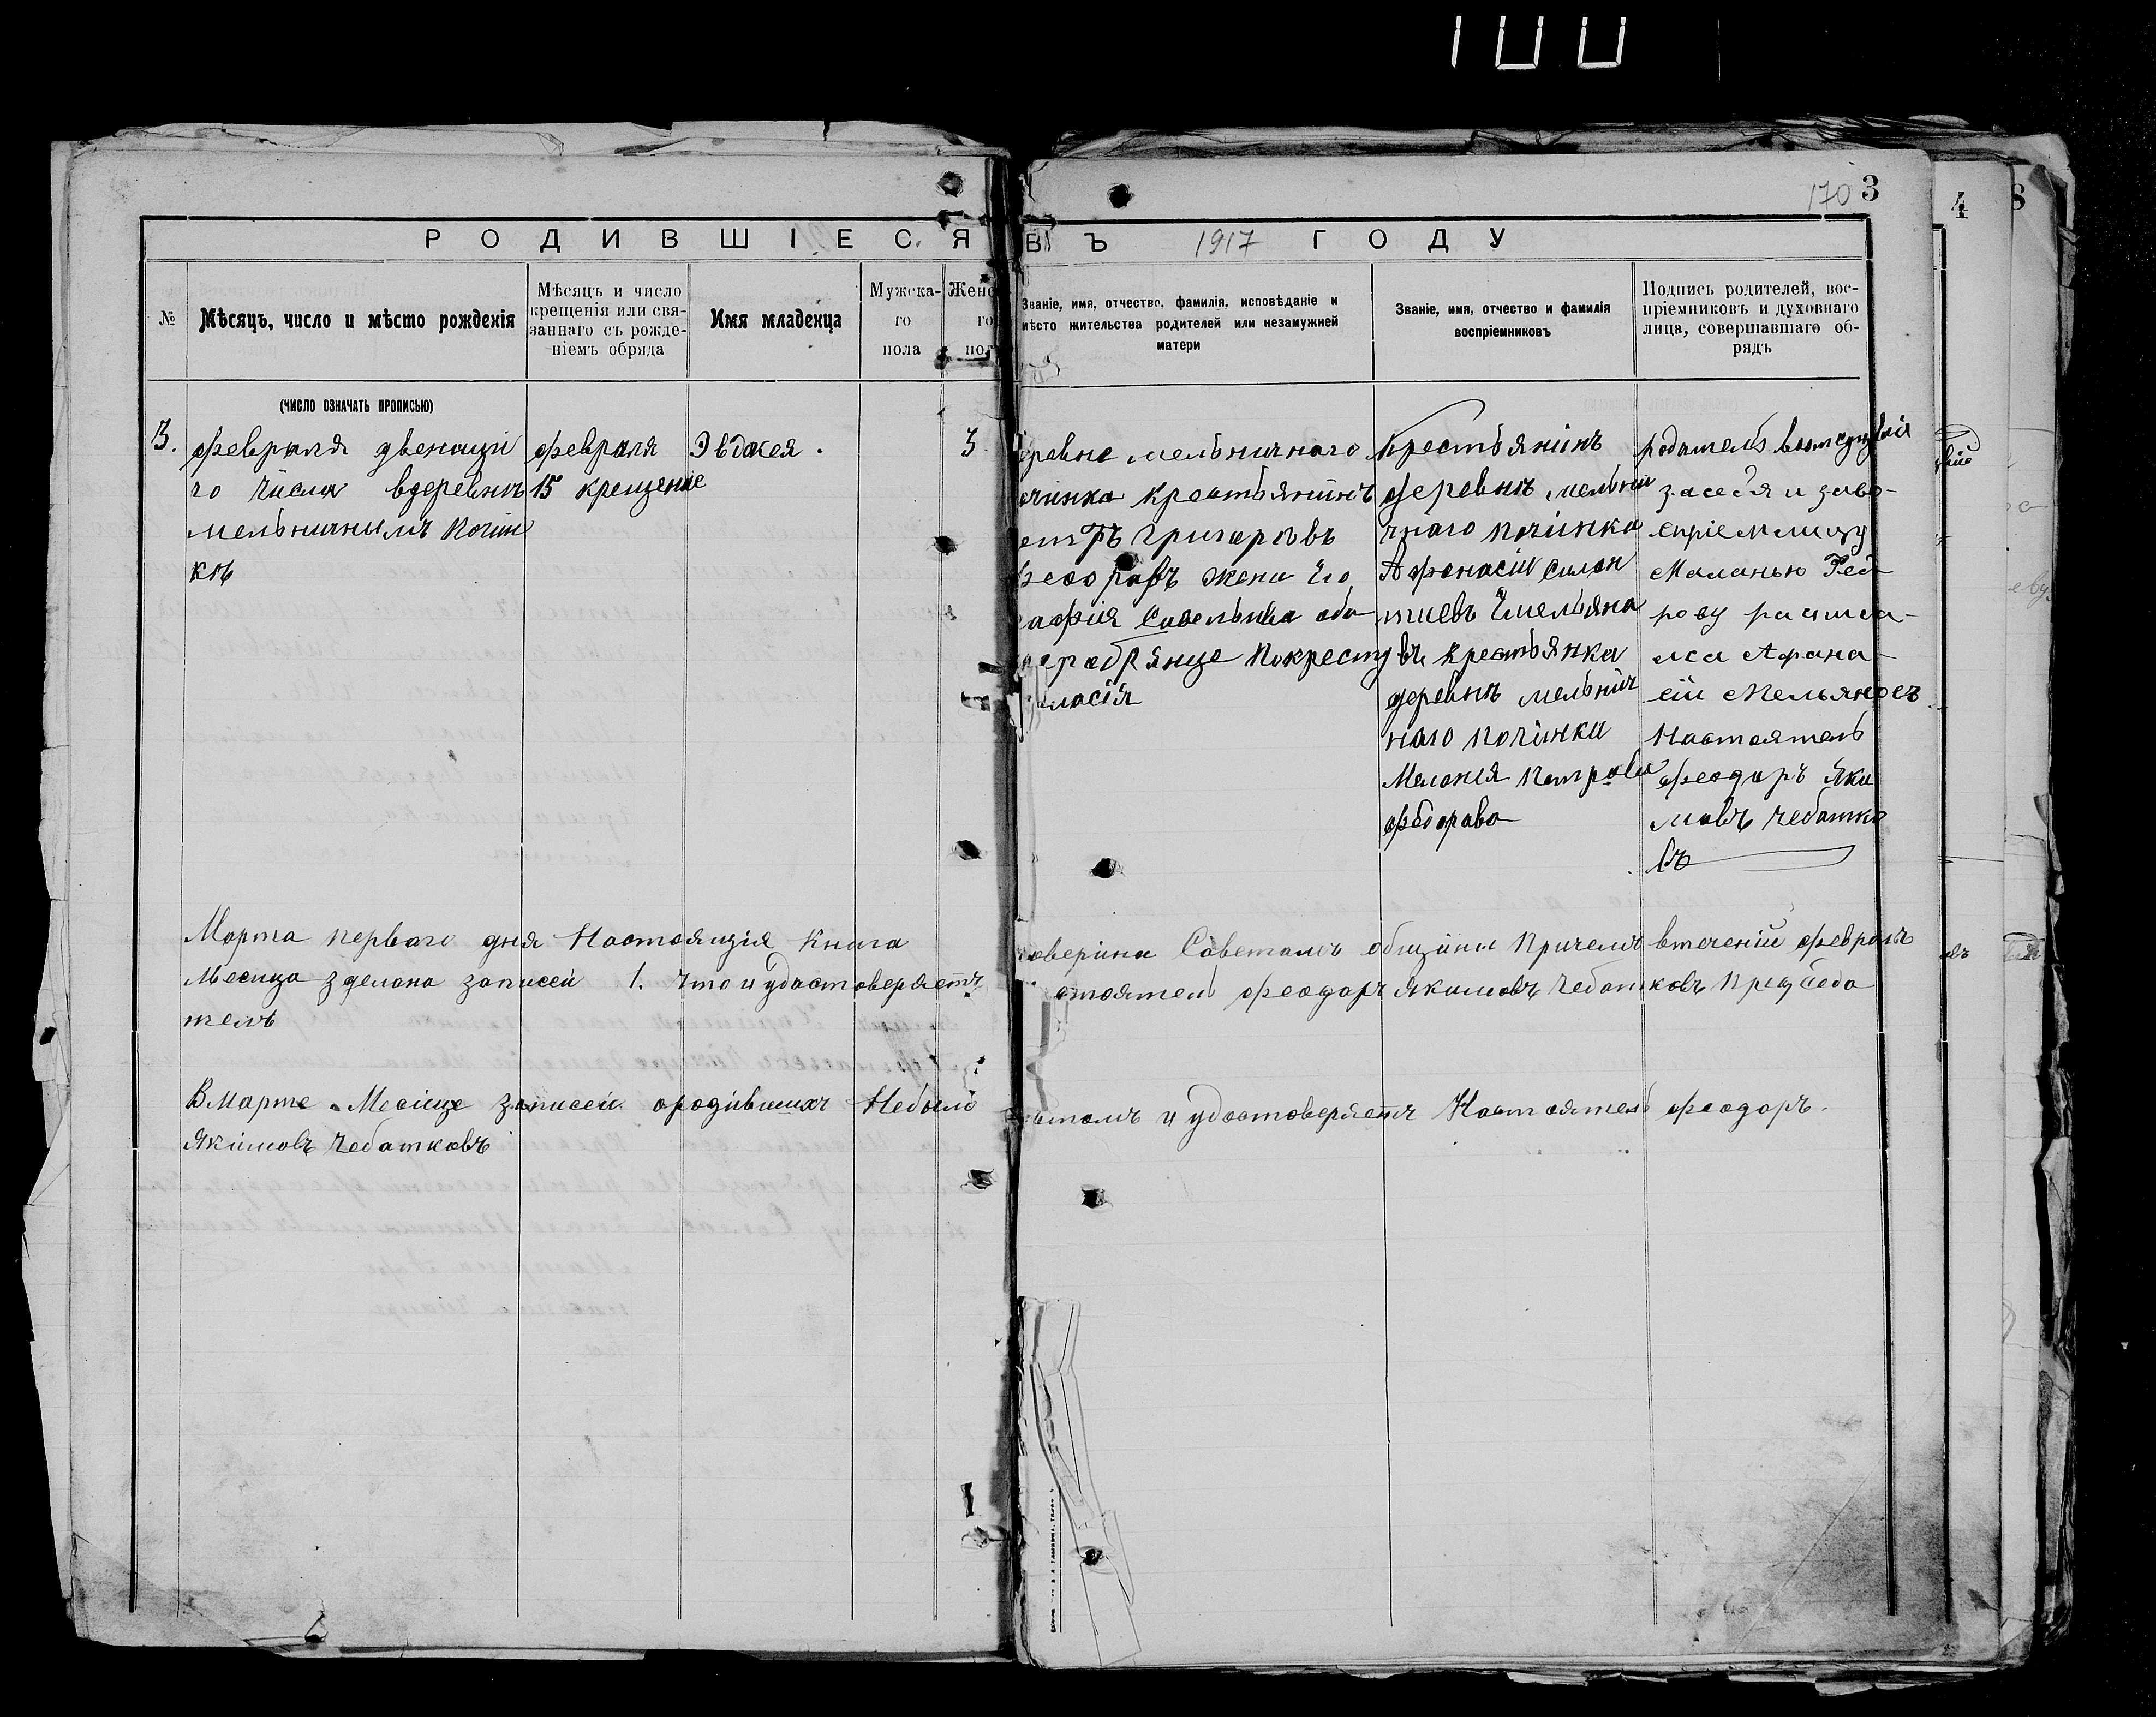 100
170 3
4
8
РОДИВШІЕСЯ ВЪ 1917 ГОДУ
№
Мѣсяцъ, число и мѣсто рожденія
Мѣсяцъ и число
крещенія или свя-
заннаго съ рожде-
ніемъ обряда
Имя младенца
Мужска-
го
пола
Женс
го
пол
Званіе, имя, отчество, фамилія, исповѣданіе и
мѣсто жительства родителей или незамужней
матери
Званіе, имя, отчество и фамилія
воспріемниковъ
Подпись родителей, вос-
пріемниковъ и духовнаго
лица, совершавшаго об-
рядъ
(число означать прописью)
3.
февраля двенаци
го числа вдеревнѣ
мельничнымъ почин
кѣ
февраля
15 крещение
Эвдокея.
3
еревне мельничного
очинка крестьянинъ
етръ григоровъ
феодоровъ жена его
афия Савельива оба
покресту
ласія
Крестьянинъ
деревнѣ мельни
чнаго починка
Афонасии силан
тиевъ Емельяно
въ крестьянка
деревнѣ мельнич
наго починка
Мелания петрова
федорова
родитель
засебя и заво-
спріемницу
Маланью Фед
рову расписа-
лся Афана-
сій Мельяновъ
Настоятель
феодоръ Яки
мовъ чебатко
въ
Марта перваго дня Настоящія книга оверина Советамъ общины причемъ втечении февраль
Месица зделана записей 1. что и удостоверяетъ стоятель феодоръ Якимовъ чебатковъ председа
тель
Вмарте Месице записей ородившихъ Небыло и удостоверяетъ Настоятель феодоръ.
Якимовъ чебатковъ